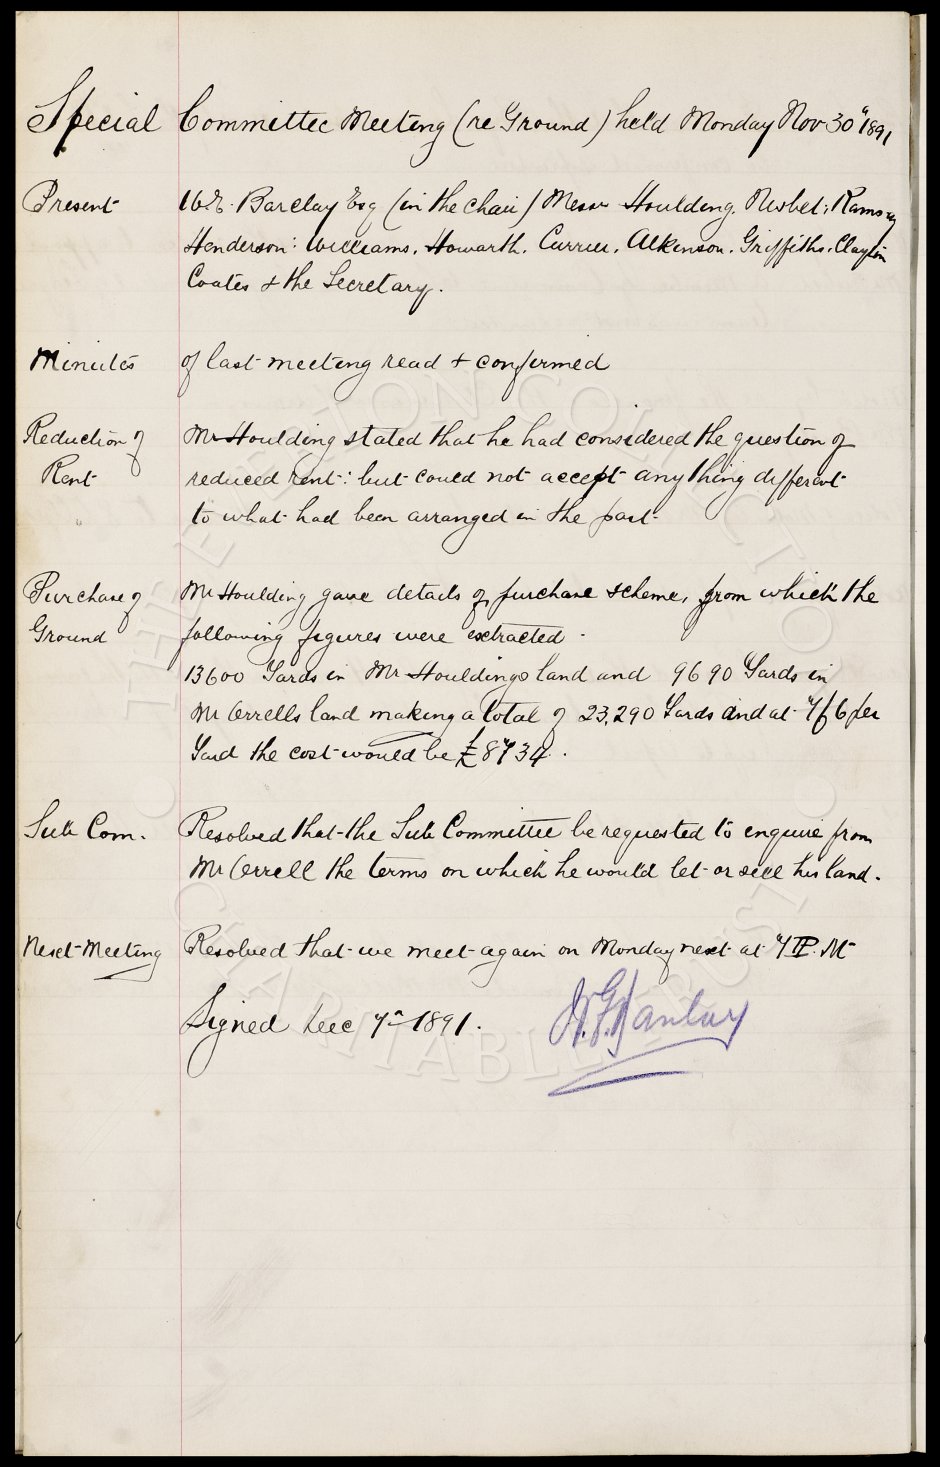 Special Committee Meeting (re Ground) held Monday Nov 30" 1891
Present W.E. Barclay Esq (in the chair) Messrs Houlding. Nisbet; Ramsay
Henderson: Williams. Howarth. Currier. Atkinson. Griffiths. Clayton
Coates & the Secretary.
Minutes of last meeting read & confirmed
Reduction of Mr Houlding stated that he had considered the question of
Rent reduced Rent: but could not accept any thing different
to what had been arranged in the past
Purchase of Mr Houlding gave details of purchase scheme, from which the
Ground following figures were extracted.
13600 Yards in Mr Houldings land and 9690 Yards in
Mr Orrells land making a total of 23,290 Yards and at 7/6 per
Yard the cost would be £8734.
Sub Com. Resolved that the Sub Committee be requested to enquire from
Mr Orrell the terms on which he would let or sell his land.
Next Meeting Resolved that we meet again on Monday next at 7 P.M
Signed Dec 7th 1891.
THE EVERTON COLLECTION
CHARITABLE TRUST